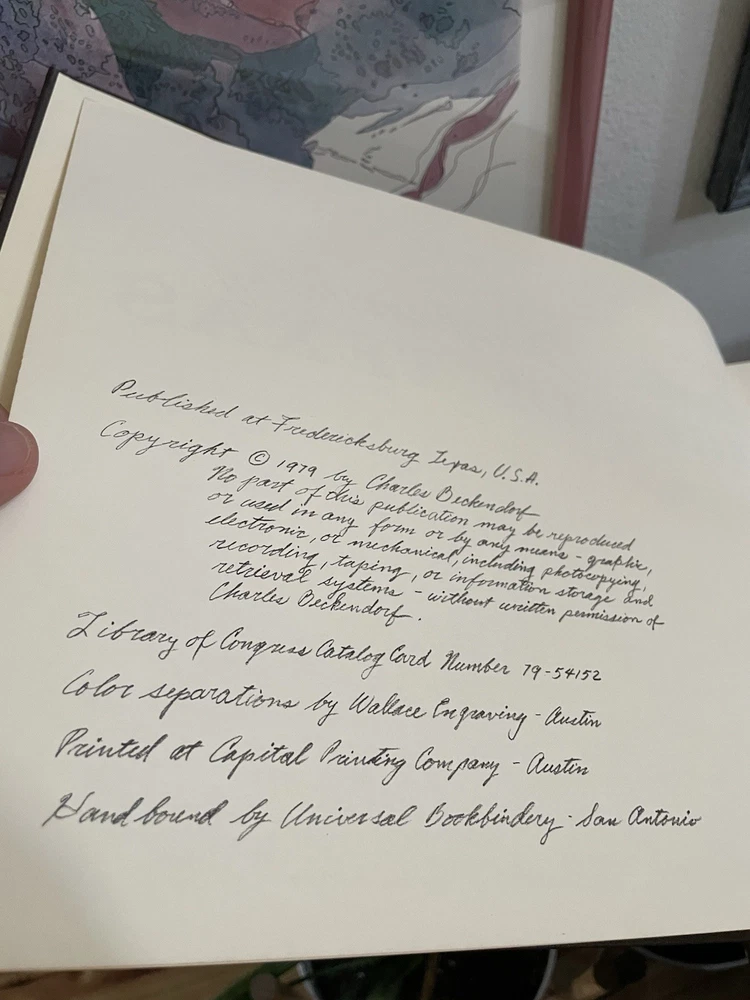 Published at Fredericksburg Texas, U.S.A.
Copyright © 1979 by Charles Beckendorf
No part of this publication may be reproduced
or used in any form or by any means - graphic,
electronic, or mechanical, including photocopying,
recording, taping, or information storage and
retrieval systems - without written permission of
Charles Beckendorf.
Library of Congress Catalog Card Number 79-54152
Color separations by Wallace Engraving - Austin
Printed at Capital Printing Company - Austin
Hand bound by Universal Bookbindery - San Antonio